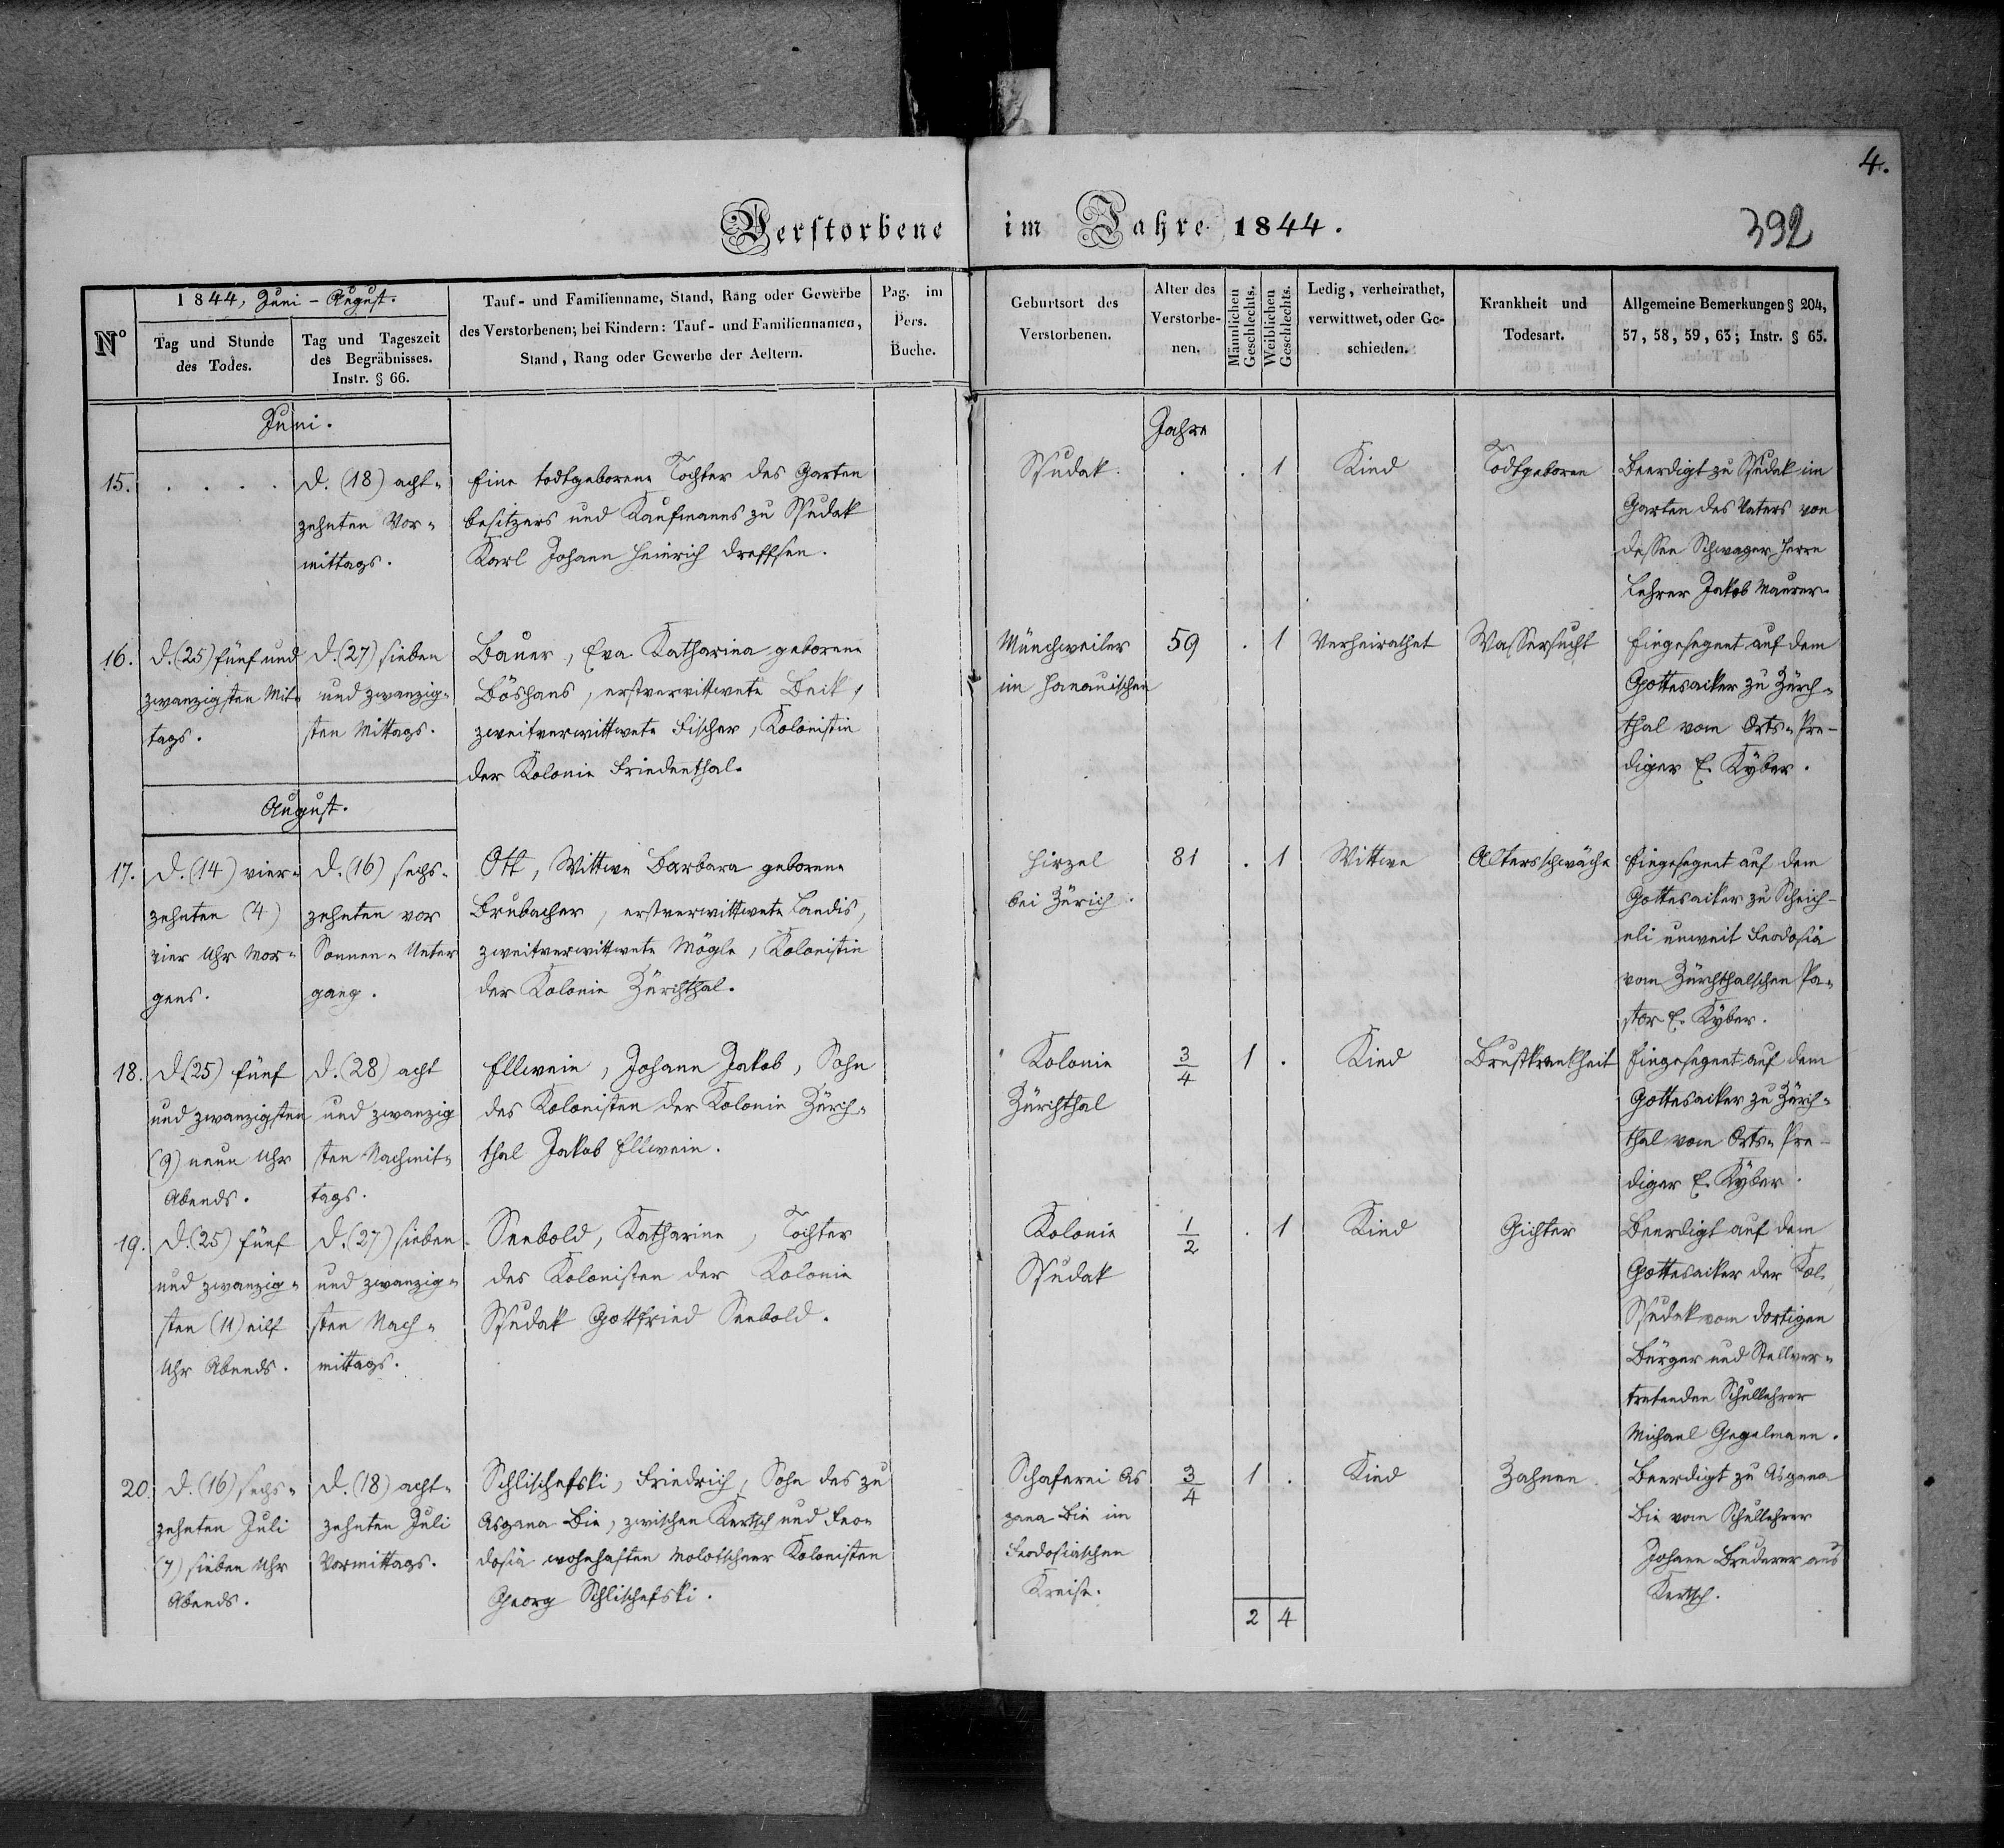 4.
Verstorbene im Jahre 1844.
392
N°
1844, Juni - August.
Tag und Stunde
des Todes.
Tag und Tageszeit
des Begräbnisses.
Instr. § 66.
Tauf- und Familienname, Stand, Rang oder Gewerbe
des Verstorbenen; bei Kindern: Tauf- und Familiennamen,
Stand, Rang oder Gewerbe der Aeltern.
Pag. im
Pers.
Buche.
Geburtsort des
Verstorbenen.
Alter des
Verstorbe-
nen.
Männlichen
Geschlechts.
Weiblichen
Geschlechts.
Ledig, verheirathet,
verwittwet, oder Ge-
schieden.
Krankheit und
Todesart.
Allgemeine Bemerkungen § 204,
57, 58, 59, 63; Instr. § 65.
Juni.
Jahre
15.
. . . .
d. (18) acht-
zehnten Vor-
mittags.
Eine todtgeborene Tochter des Garten
besitzers und Kaufmanns zu Ssudak
Karl Johann Heinrich
Ssudak.
.
.
1
Kind
Todtgeboren
Beerdigt zu Ssudak im
Garten des Vaters von
dessen Schwager Herrn
Lehrer Jakob Maurer.
16.
d. (25) fünf und
zwanzigsten Mit-
tags.
d. (27) sieben
und zwanzig-
sten Mittags.
Bauer, Eva Katharina geborene
Böshans, erstverwittwete Beik,
zweitverwittwete Fischer, Kolonistin
der Kolonie Friedenthal.
Münchweiler
im Hanauischen
59
.
1
Verheirathet
Wassersucht
Eingesegnet auf dem
Gottesacker zu Zürch-
thal vom Orts-Pre-
diger E. Kyber.
August.
17.
d. (14) vier-
zehnten (4)
vier Uhr Mor-
gens.
d. (16) sechs-
zehnten vor
Sonnen-Unter
gang.
Ott, Wittwe Barbara geborene
Brubacher, erstverwittwete Landis,
zweitverwittwete Mögle, Kolonistin
der Kolonie Zürichthal.
Hirzel
bei Zürich.
81
.
1
Wittwe
Altersschwäche
Eingesegnet auf dem
Gottesacker zu Scheich-
eli unweit Feodosia
vom Zürchthalschen Pa-
stor E. Kyber.
18.
d. (25) fünf
und zwanzigsten
(9) neun Uhr
Abends.
d. (28) acht
und zwanzig
sten Nachmit-
tags.
Ellwein, Johann Jakob, Sohn
des Kolonisten der Kolonie Zürch-
thal Jakob Ellwein.
Kolonie
Zürichthal
3/4
1
.
Kind
Brustkrankheit
Eingesegnet auf dem
Gottesacker zu Zürch-
thal vom Orts-Pre-
diger E. Kyber.
19.
d. (25) fünf
und zwanzig-
sten (11) eilf
Uhr Abends.
d. (27) sieben
und zwanzig-
sten Nach-
mittags.
Seebold, Katharine, Tochter
des Kolonisten der Kolonie
Ssudak Gottfried Seebold.
Kolonie
Ssudak
1/2
.
1
Kind
Gichter
Beerdigt auf dem
Gottesacker der Kol.
Ssudak vom dortigen
Bürger und Stellver-
tretenden Schullehrer
Michael Gegelmann.
20.
d. (16) sechs-
zehnten Juli
(7) sieben Uhr
Abends.
d. (18) acht-
zehnten Juli
Vormittags.
Schlischefski, Friedrich, Sohn des zu
Asgana Bie, zwischen Kertsch und Feo-
dosia wohnhaften Molotschner Kolonisten
Georg Schlischefski.
Schäferei As
gana Bie im
Feodosiaschen
Kreise.
3/4
1
.
Kind
Zahnen.
Beerdigt zu Asgana
Bie vom Schullehrer
Johann Bruderer aus
Kertsch.
2
4